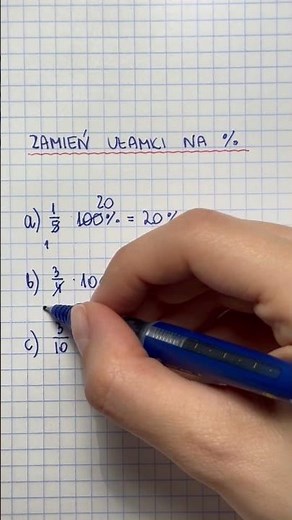 ZAMIEŃ UŁAMKI NA %
a) 1/5 100% = 20%
20
1
b) 3/4 · 10
c) 3/10